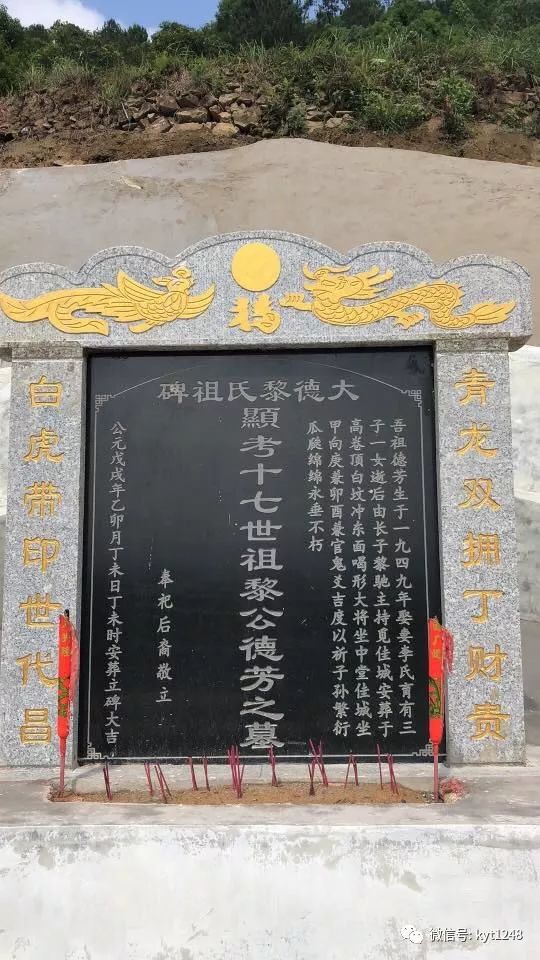 福
大德黎氏祖碑
青龙双拥丁财贵
吾祖德芳生于一九四九年娶妻李氏育有三
子一女逝后由长子黎驰主持觅佳城安葬于
高卷顶白坟冲东面喝形大将坐中堂佳城坐
甲向庚兼卯酉兼官鬼爻吉度以祈子孙繁衍
瓜瓞绵绵永垂不朽
顯考十七世祖黎公德芳之墓
奉祀后裔敬立
公元戊戌年乙卯月丁未日丁未时安葬立碑大吉
白虎带印世代昌
微信号: kyt1248